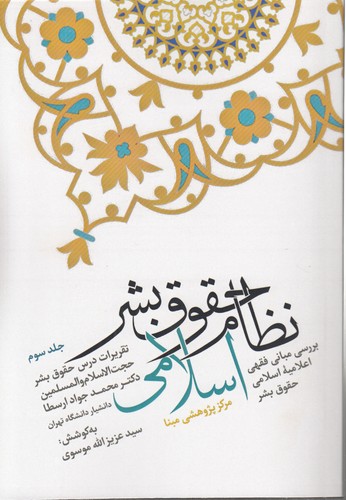 نظام حقوق بشر
اسلامی
جلد سوم
بررسی مبانی فقهی
اعلامیهٔ اسلامی
حقوق بشر
تقریرات درس حقوق بشر
حجت‌الاسلام‌والمسلمین
دکتر محمد جواد ارسطا
دانشیار دانشگاه تهران
به‌کوشش:
سید عزیزالله موسوی
مرکز پژوهشی مبنا